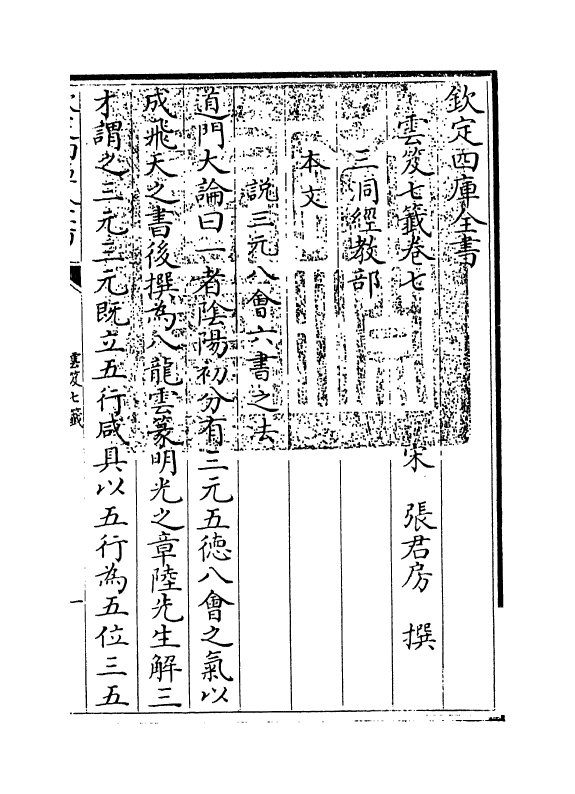 欽定四庫全書
雲笈七籤卷七
宋 張君房 撰
三洞經教部
本文
說三元八會六書之法
道門大論曰一者隂陽初分有三元五徳八會之氣以
成飛天之書後撰為八龍雲篆明光之章陸先生解三
才謂之三元三元既立五行咸具以五行為五位三五
雲笈七籤
一